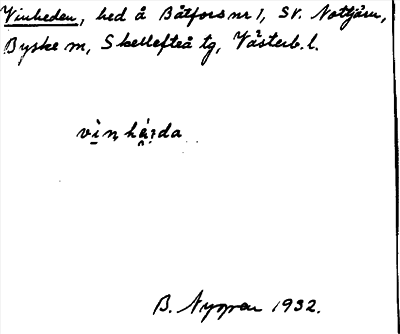 Vinheden, hed å Båtfors nr 1, SV. Nottjärn,
Byske sn, Skellefteå tg, Västerb. l.
B. Nygren 1932.